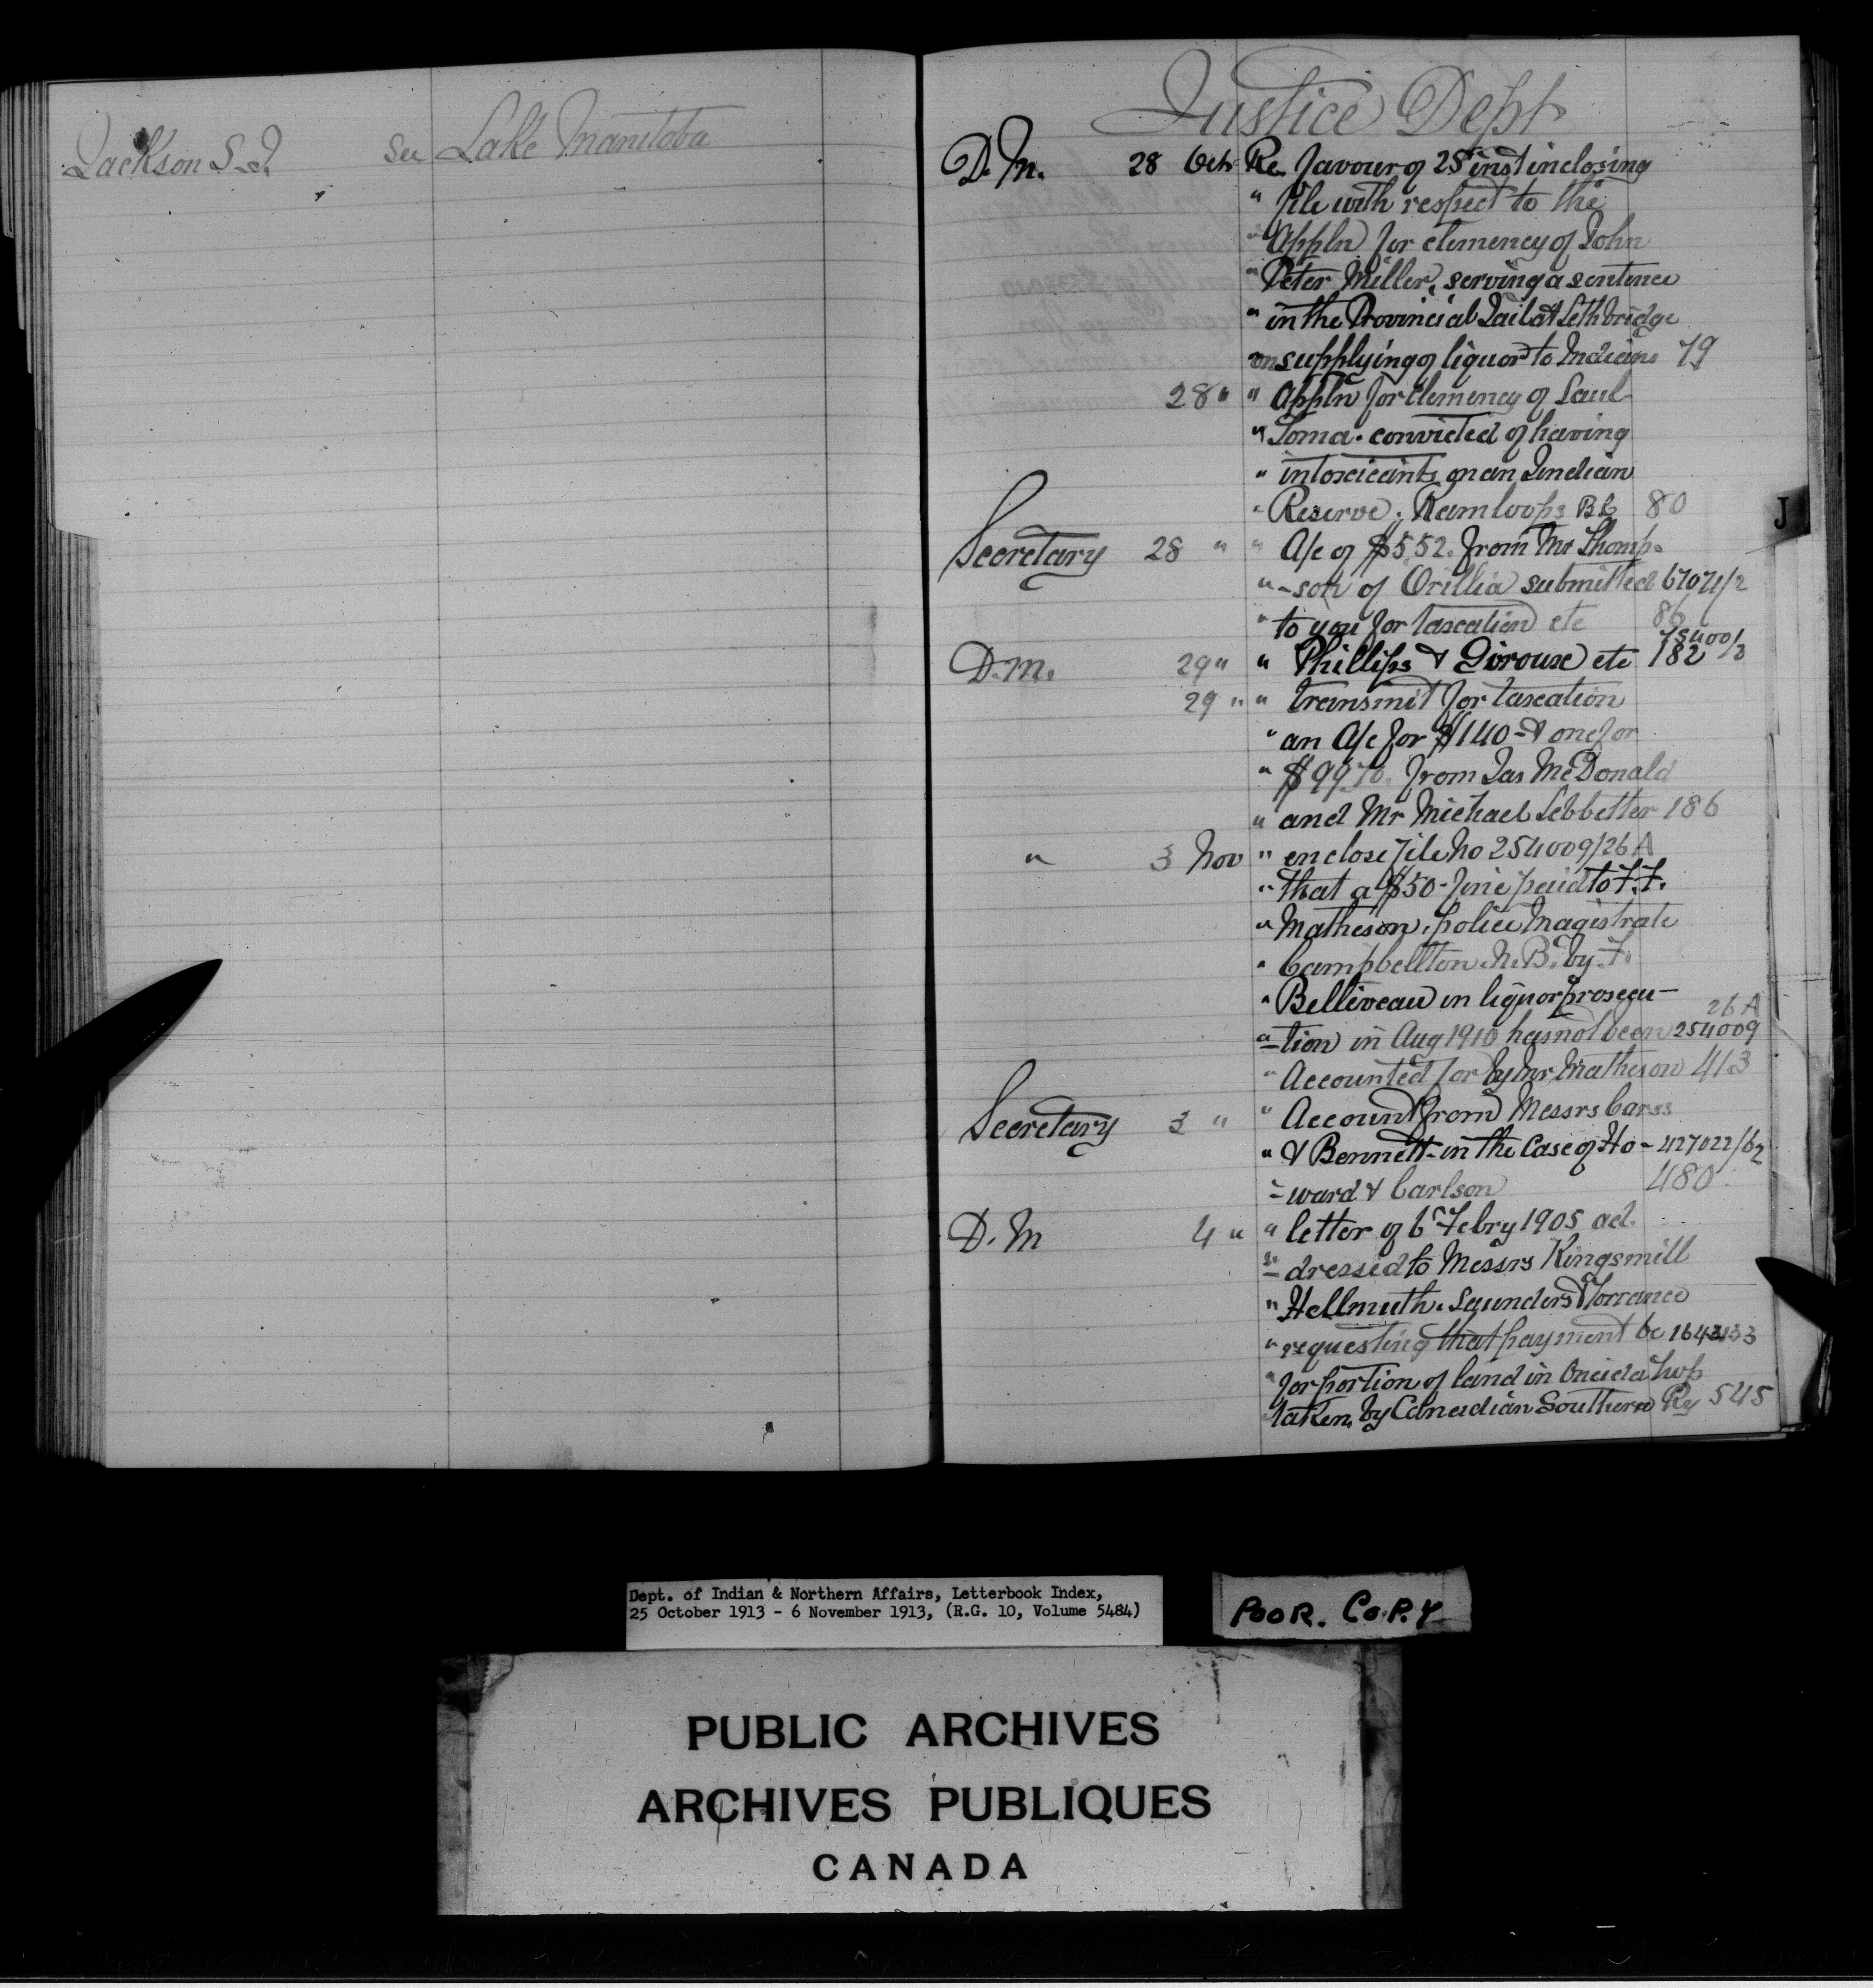 Jackson S. J. See Lake Manitoba
Justice Dept
D. M. 28 Oct Re. favour of 25 inst inclosing
" file with respect to the
" Appln for clemency of John
" Peter Miller, serving a sentence
" in the Provincial Jail at Lethbridge
on supplying of liquor to Indians 79
28 " " Appln for clemency of Saul
" Toma. convicted of having
" intoxicants on an Indian
" Reserve. Kamloops BC 80
Secretary 28 " " A/c of $5.52. from Mr Thomp-
" -son of Orillia submitted 67071/2
" to you for taxation etc 86
D. M. 29 " " Phillips & Giroux etc 182
29 " " transmit for taxation
" an A/c for $140- & one for
" $99.70. from Jas McDonald
" and Mr Michael Lebbetter 186
" 3 Nov " enclose file No 254009/26A
" that a $50- fine paid to F. F.
" Matheson. police Magistrate
" Campbellton. N. B. by F.
" Belliveau in liquor prosecu- 26 A
" -tion in Aug 1910 has not been 254009
" Accounted for by Mr Matheson 413
Secretary 3 " " Account from Messrs Carss
" & Bennett- in the Case of Ho- 427022/62
" -ward & Carlson 480
D. M 4 " " letter of 6 Febry 1905 ad.
" -dressed to Messrs Kingsmill
" Hellmuth. Saunders & Torrance
" requesting that payment be
" for portion of land in Oneida Twp
" taken by Canadian Southern Ry 545
J
Dept. of Indian & Northern Affairs, Letterbook Index,
25 October 1913 - 6 November 1913, (R.G. 10, Volume 5484)
POOR. COPY
PUBLIC ARCHIVES
ARCHIVES PUBLIQUES
CANADA